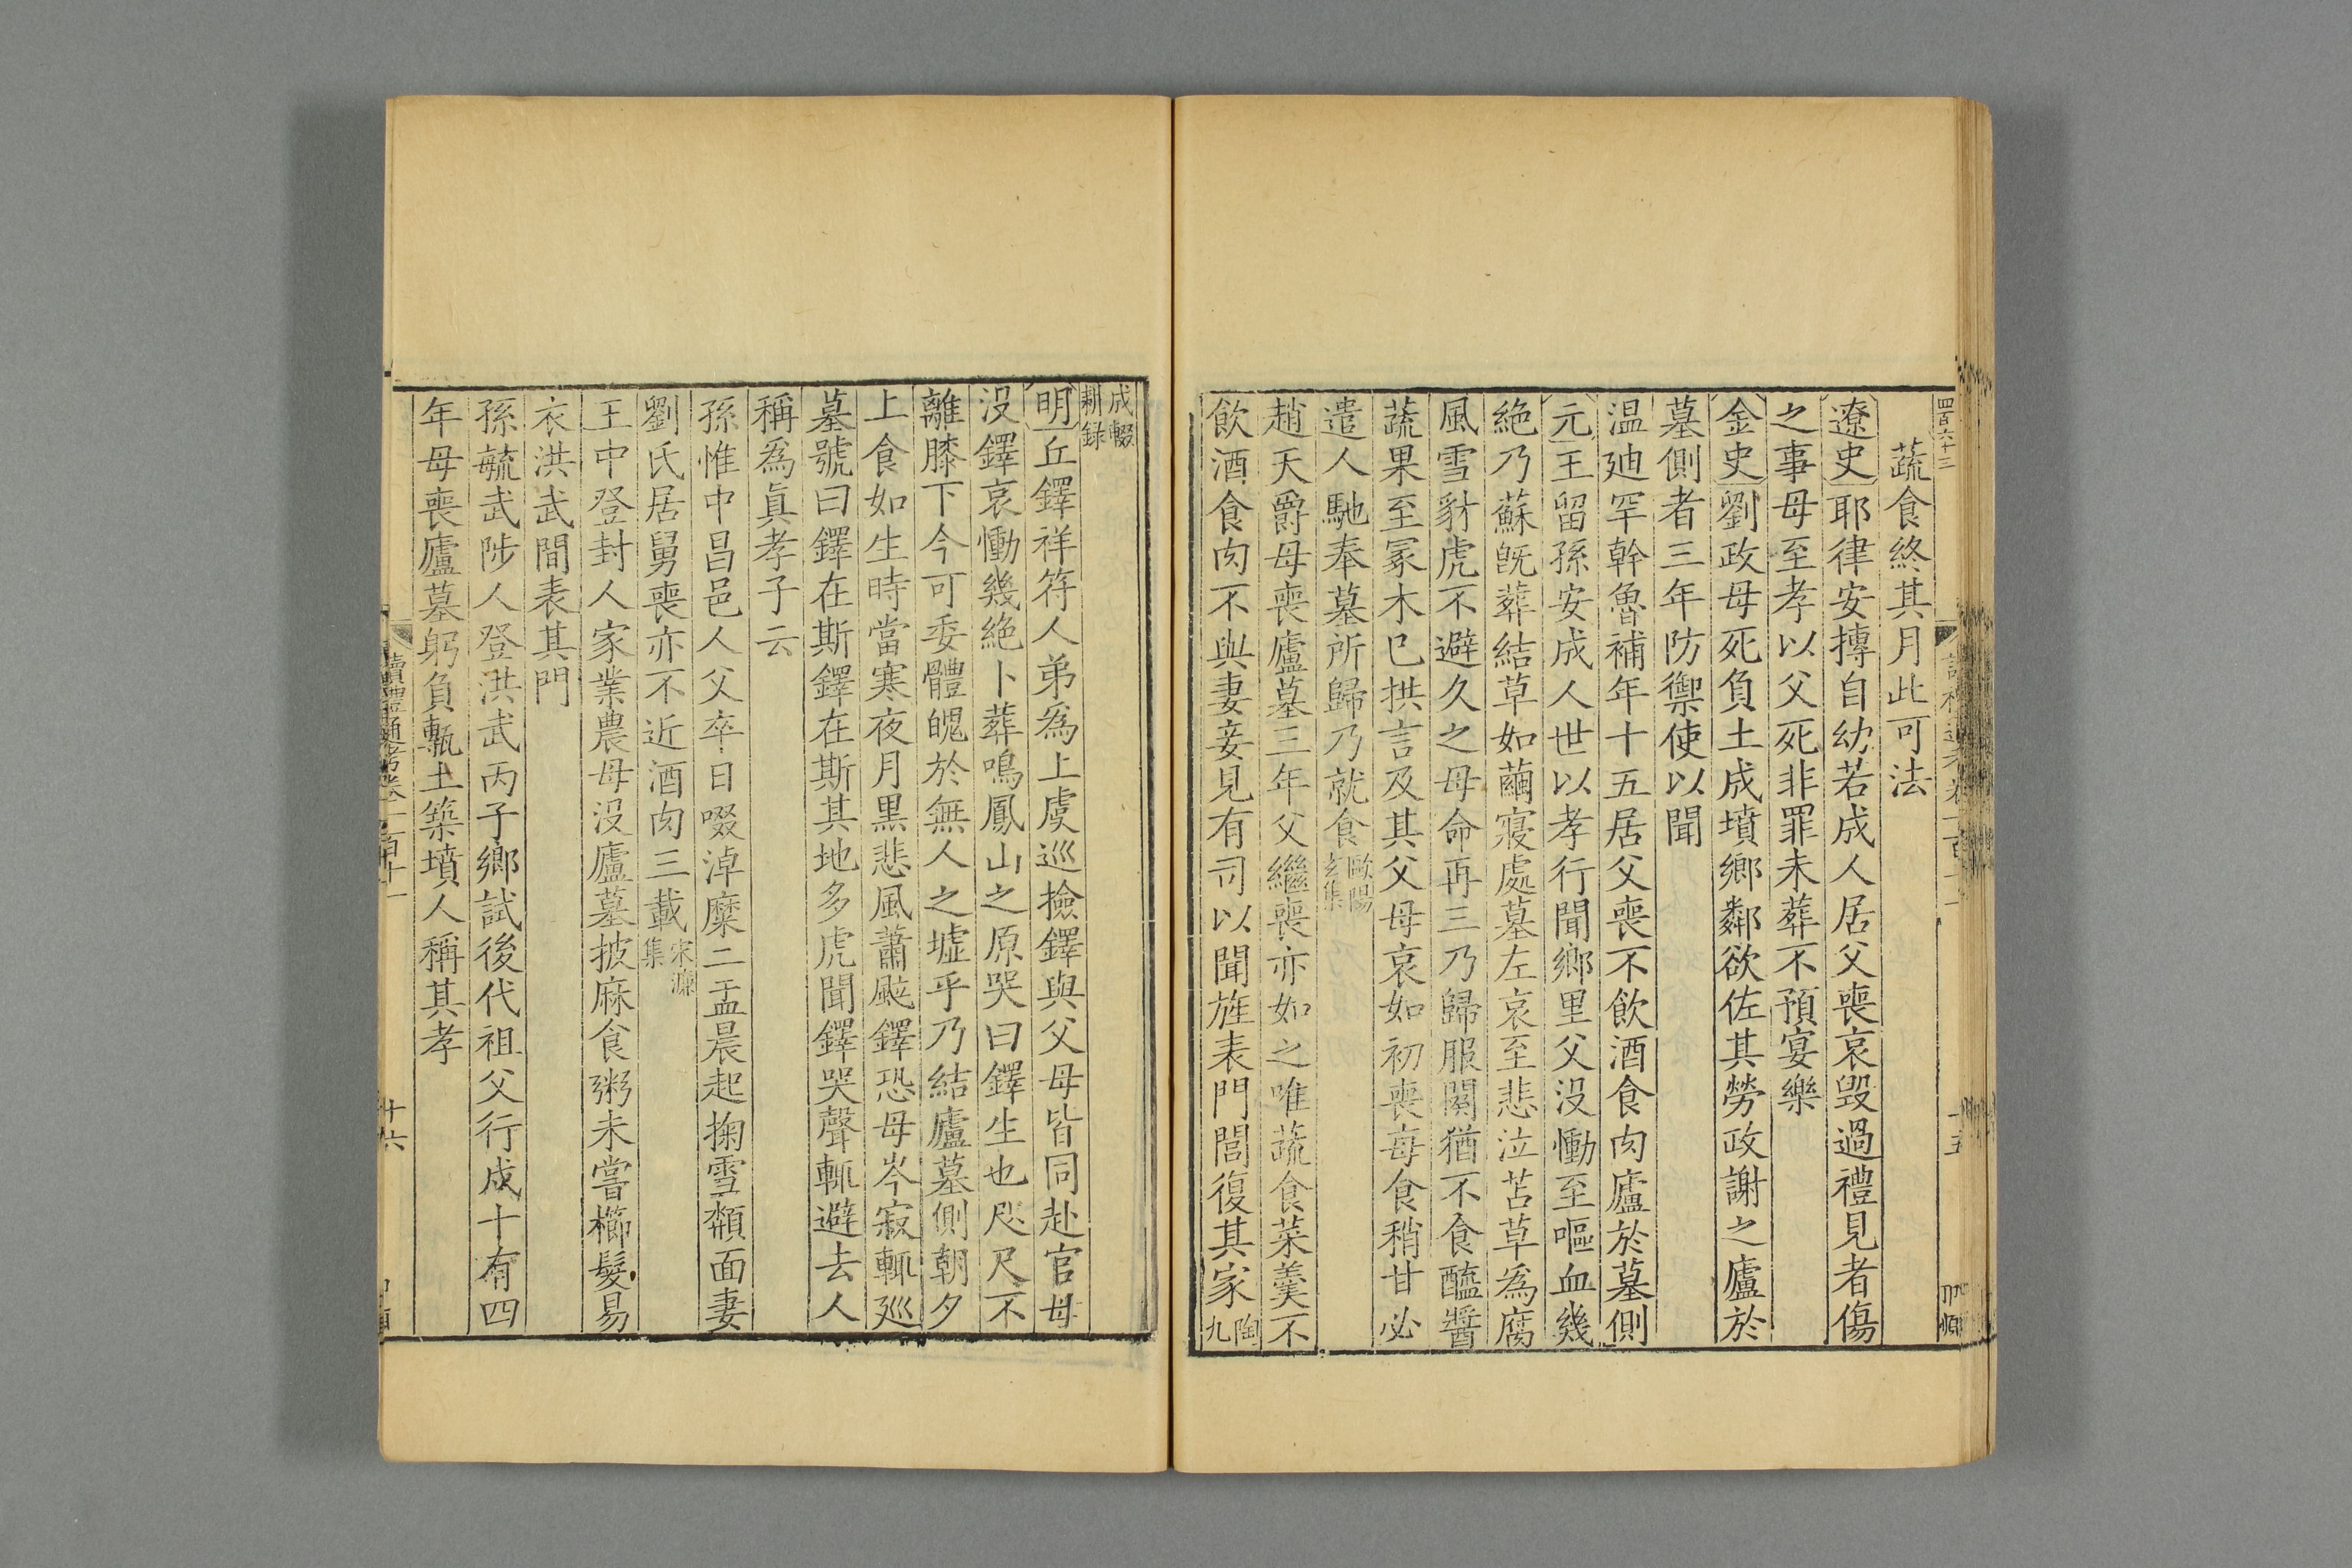 四百六十三
蔬食終其月此可法
遼史耶律安摶自幼若成人居父喪哀毀過禮見者傷
之事母至孝以父死非罪未葬不預宴樂
金史劉政母死負土成墳鄉鄰欲佐其勞政謝之廬於
墓側者三年防禦使以聞
温廸罕幹魯補年十五居父喪不飲酒食肉廬於墓側
元王留孫安成人世以孝行聞鄉里父没慟至嘔血幾
絶乃蘇旣葬結草如繭寢處墓左哀至悲泣苫草爲腐
風雪豺虎不避久之母命再三乃歸服闋猶不食醯醬
蔬果至冢木已拱言及其父母哀如初喪每食稍甘必
遣人馳奉墓所歸乃就食歐陽玄集
趙天爵母喪廬墓三年父繼喪亦如之唯蔬食菜羹不
飲酒食肉不與妻妾見有司以聞旌表門閭復其家陶九
成輟耕録
明丘鐸祥符人弟爲上虞巡撿鐸與父母皆同赴官母
没鐸哀慟幾絶卜葬鳴鳳山之原哭曰鐸生也咫尺不
離膝下今可委體魄於無人之墟乎乃結廬墓側朝夕
上食如生時當寒夜月黒悲風蕭颼鐸恐母岑寂輒廵
墓號曰鐸在斯鐸在斯其地多虎聞鐸哭聲輒避去人
稱爲眞孝子云
孫惟中昌邑人父卒日啜淖糜二盂晨起掬雪頮面妻
劉氏居舅喪亦不近酒肉三載宋濂集
王中登封人家業農母没廬墓披麻食粥未嘗櫛髮易
衣洪武間表其門
孫毓武陟人登洪武丙子鄉試後代祖父行成十有四
年母喪廬墓躬負甎土築墳人稱其孝
讀禮通考卷一百十一
十六